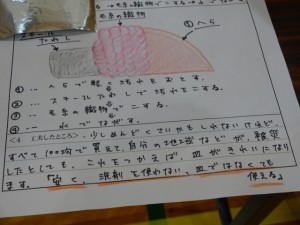 毛糸の織物
スチール
たわし
へら
① … へらで軽く汚れをおとす。
② … スチールたわしで汚れをこする。
③ … 毛糸の織物でこする。
④ … 水でながす。
<4 工夫したところ> 少しめんどくさいかもしれないけれど、
すべて100均で買えて、自分の地域などが
したとしても、これをつかえば、皿がきれいになり
ます。「安く、洗剤を使わない、皿ではなくても
使える」